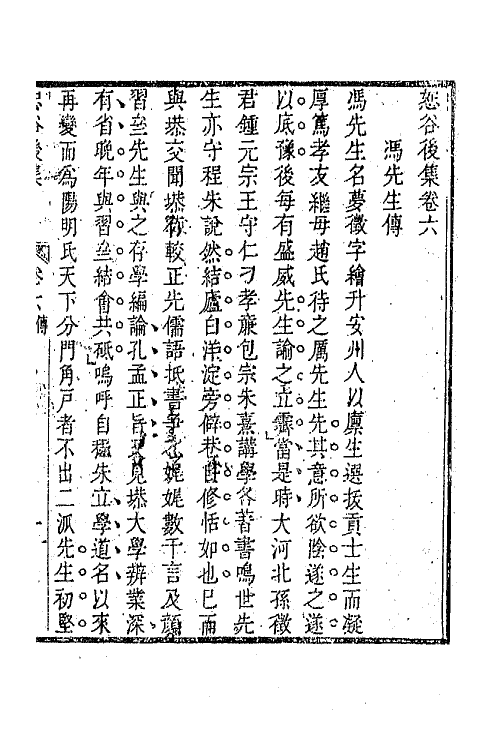 恕谷後集卷六
馮先生傳
馮先生名夢徵字繪升安州人以廩生選拔貢士生而凝
厚篤孝友繼母趙氏待之厲先生先其意所欲陰遂之遂
以底豫後母有盛威先生諭之立霽當是時大河北孫徵
君鍾元宗王守仁刁孝廉包宗朱熹講學各著書鳴世先
生亦守程朱說然結廬白洋淀旁僻巷自修恬如也已而
與㙳交聞㙳稱較正先儒語抵書爭之娓娓數千言及顏
習齋先生與之存學編論孔孟正旨又見㙳大學辨業深
有省晚年與習齋結會共砥嗚呼自穪朱立學道名以來
再變而為陽明氏天下分門角戶者不出二派先生初堅
恕谷後集
卷六傳
一